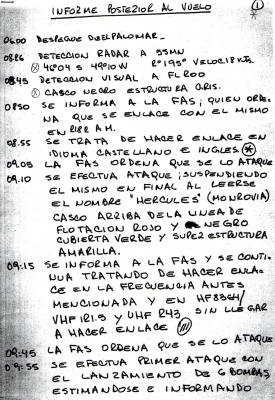 INFORME POSTERIOR AL VUELO 1
0600 DESPEGUE DUELPALOMAR.
08.26 DETECCION RADAR A 55MN
46°04 S 49°10 W R°195° VELOC.18 KTS.
0845 DETECCION VISUAL A FL200
CASCO NEGRO ESTRUCTURA GRIS.
0850 SE INFORMA A LA FAS; QUIEN ORDE-
NA QUE SE ENLACE CON EL MISMO
EN A.M.
08.55 SE TRATA DE HACER ENLACE EN
IDIOMA CASTELLANO E INGLES
09.05 LA FAS ORDENA QUE SE LO ATAQUE
09.10 SE EFECTUA ATAQUE; SUSPENDIENDO
EL MISMO EN FINAL AL LEERSE
EL NOMBRE "HERCULES" (MONROVIA)
CASCO ARRIBA DE LA LINEA DE
FLOTACION ROJO Y NEGRO
CUBIERTA VERDE Y SUPER ESTRUCTURA
AMARILLA.
09:15 SE INFORMA A LA FAS Y SE CONTI-
NUA TRATANDO DE HACER ENLA-
CE EN LA FRECUENCIA ANTES
MENCIONADA Y EN
Y UHF 243 SIN LLEGAR
A HACER ENLACE
09:45 LA FAS ORDENA QUE SE LO ATAQUE
09:55 SE EFECTUA PRIMER ATAQUE CON
EL LANZAMIENTO DE 6 BOMBAS
ESTIMANDOSE E INFORMANDO